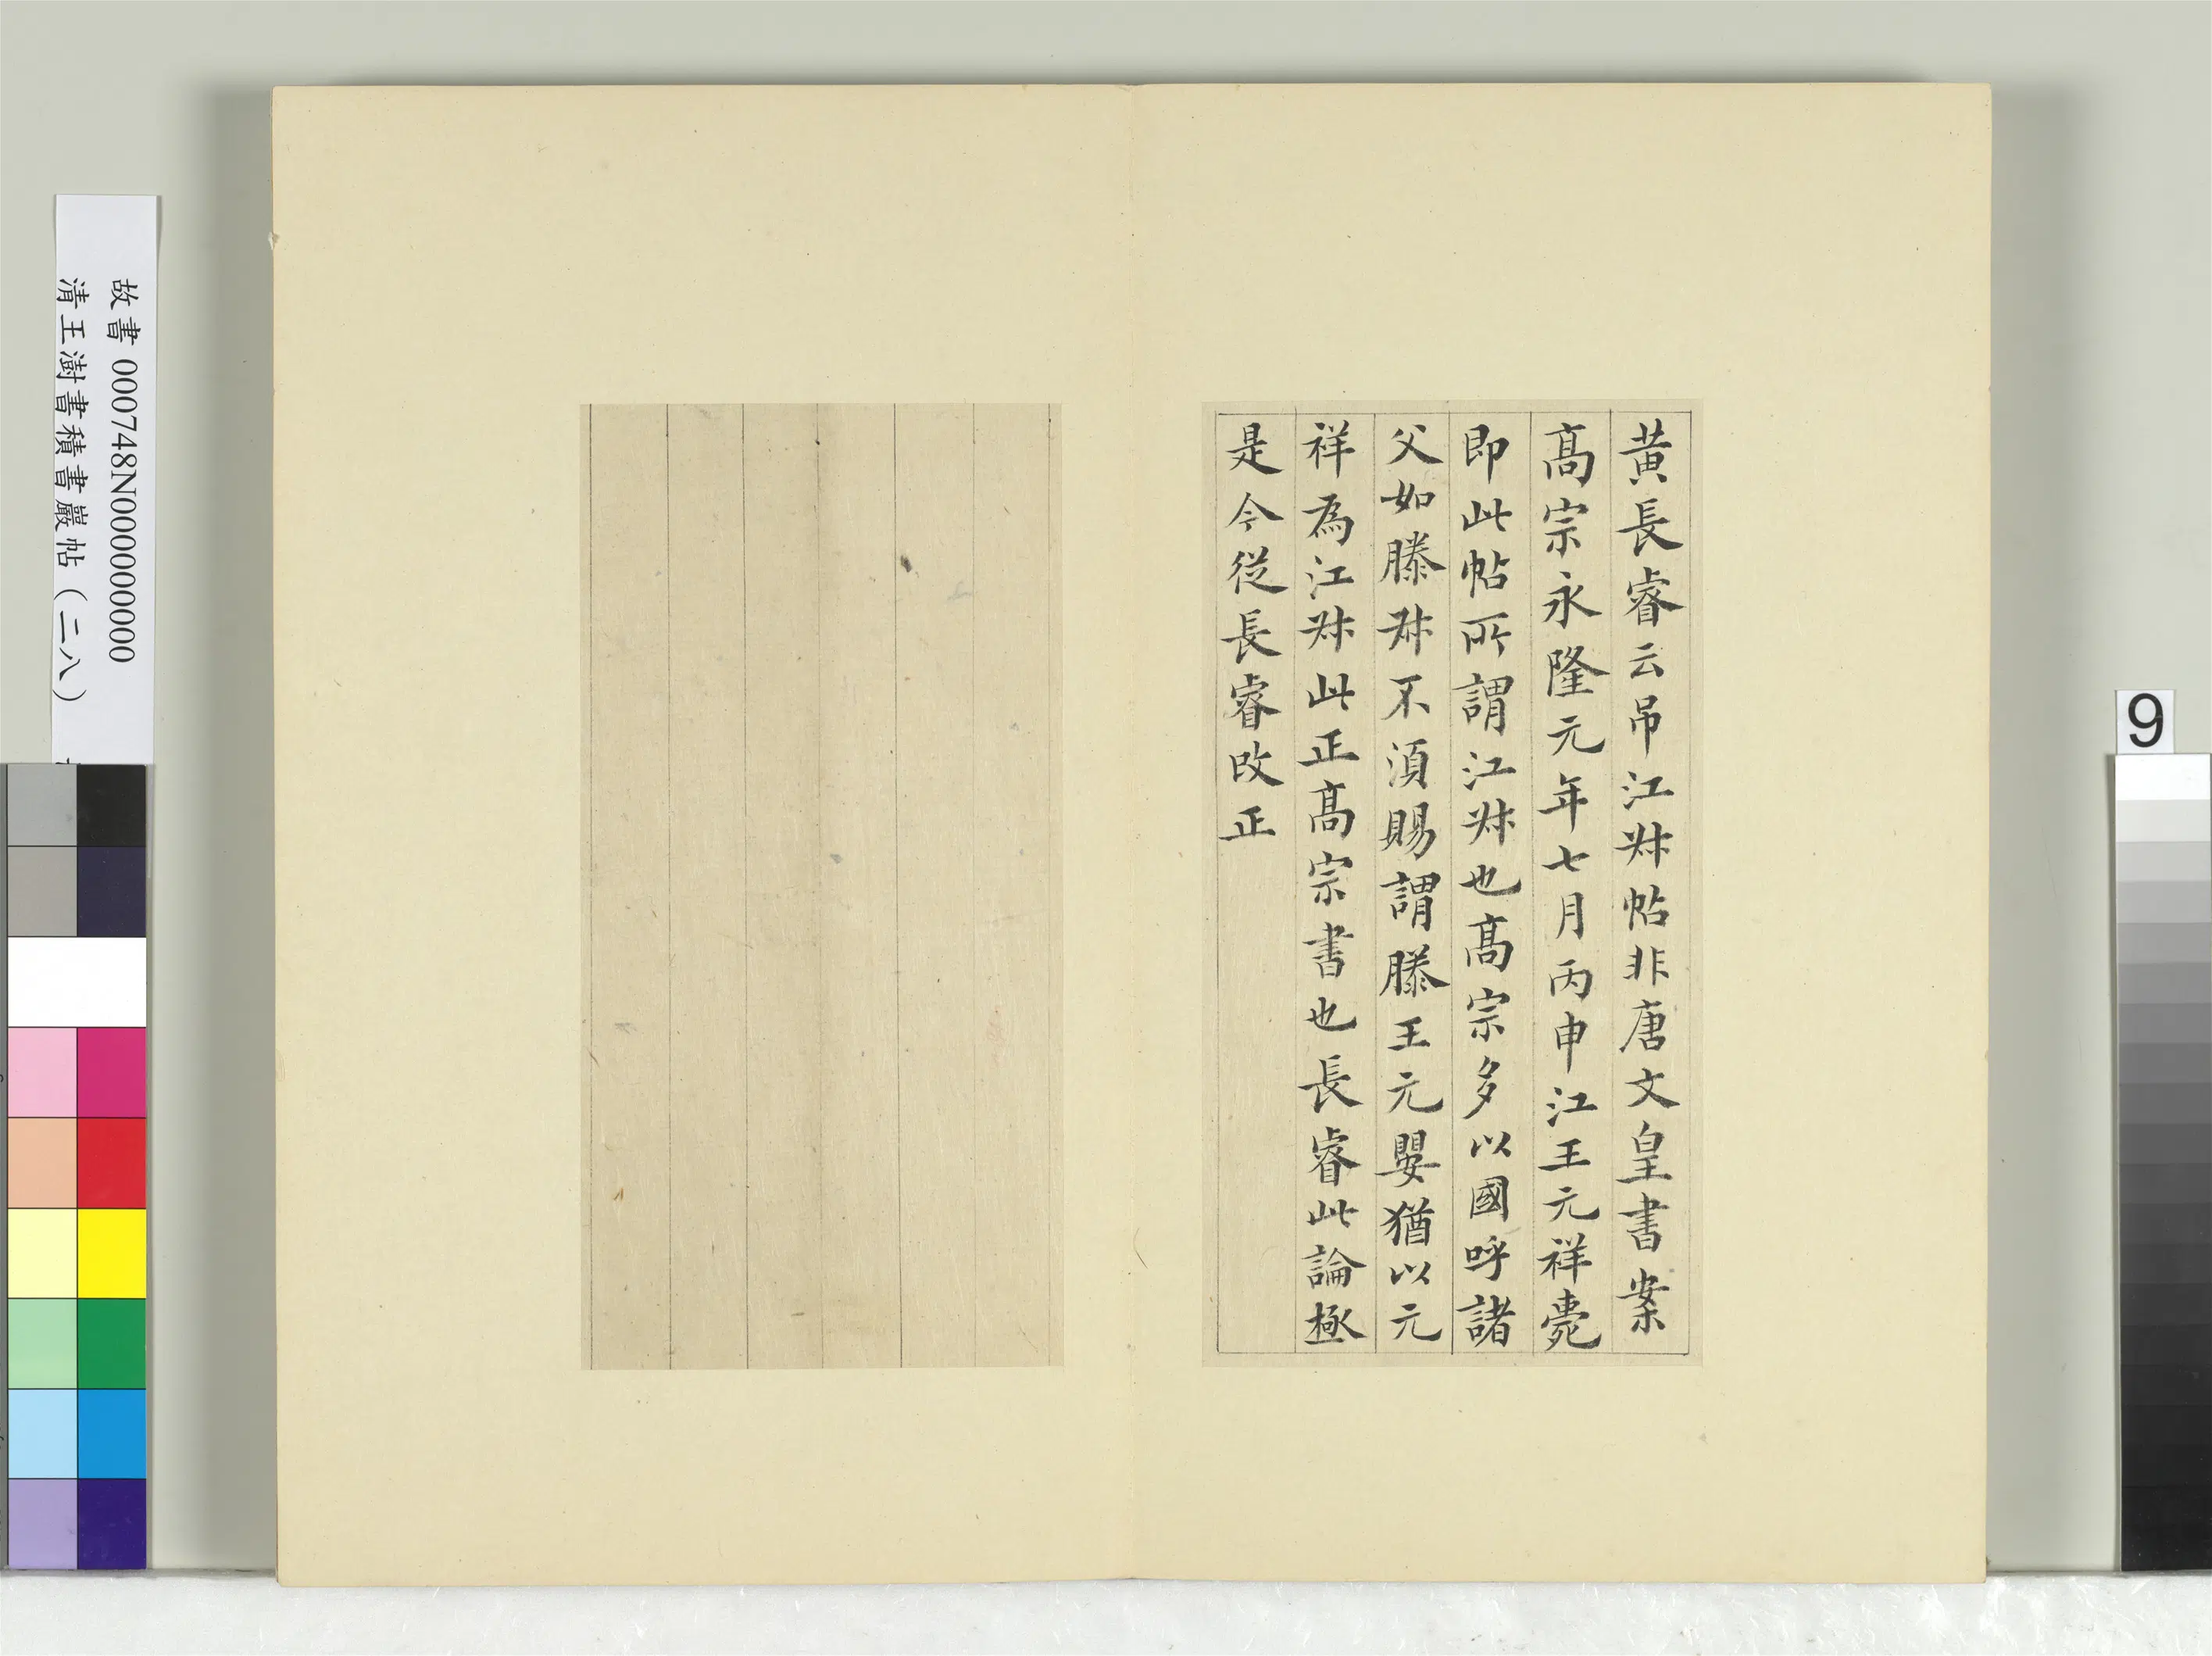 黄長睿云吊江𠦑帖非唐文皇書案
髙宗永隆元年七月丙申江王元祥薨
即此帖所謂江𠦑也髙宗多以國呼諸
父如滕𠦑不須賜謂滕王元嬰猶以元
祥為江𠦑此正髙宗書也長睿此論極
是今從長睿改正
故書 000748N000000000
清王澍書積書巖帖（二八）
9